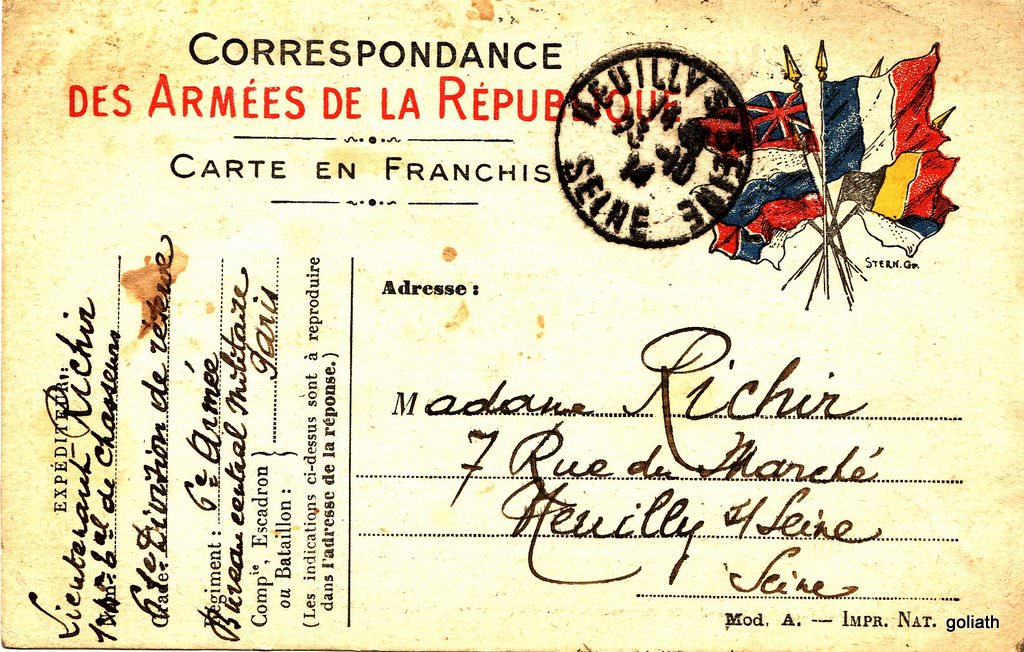 CORRESPONDANCE
DES ARMÉES DE LA RÉPUBLIQUE
CARTE EN FRANCHIS
NEUILLY S SEINE
SEINE
STERN. Gr.
EXPÉDITEUR:
Lieutenant Richir
de Chasseurs
Division de réserve
Régiment: 6e Armée
Bureau central militaire
Paris
Compie, Escadron
ou Bataillon:
(Les indications ci-dessus sont à reproduire
dans l'adresse de la réponse.)
Adresse:
Madame Richir
7 Rue du Marché
Neuilly s/ Seine
Seine
Mod. A. — IMPR. NAT.
goliath